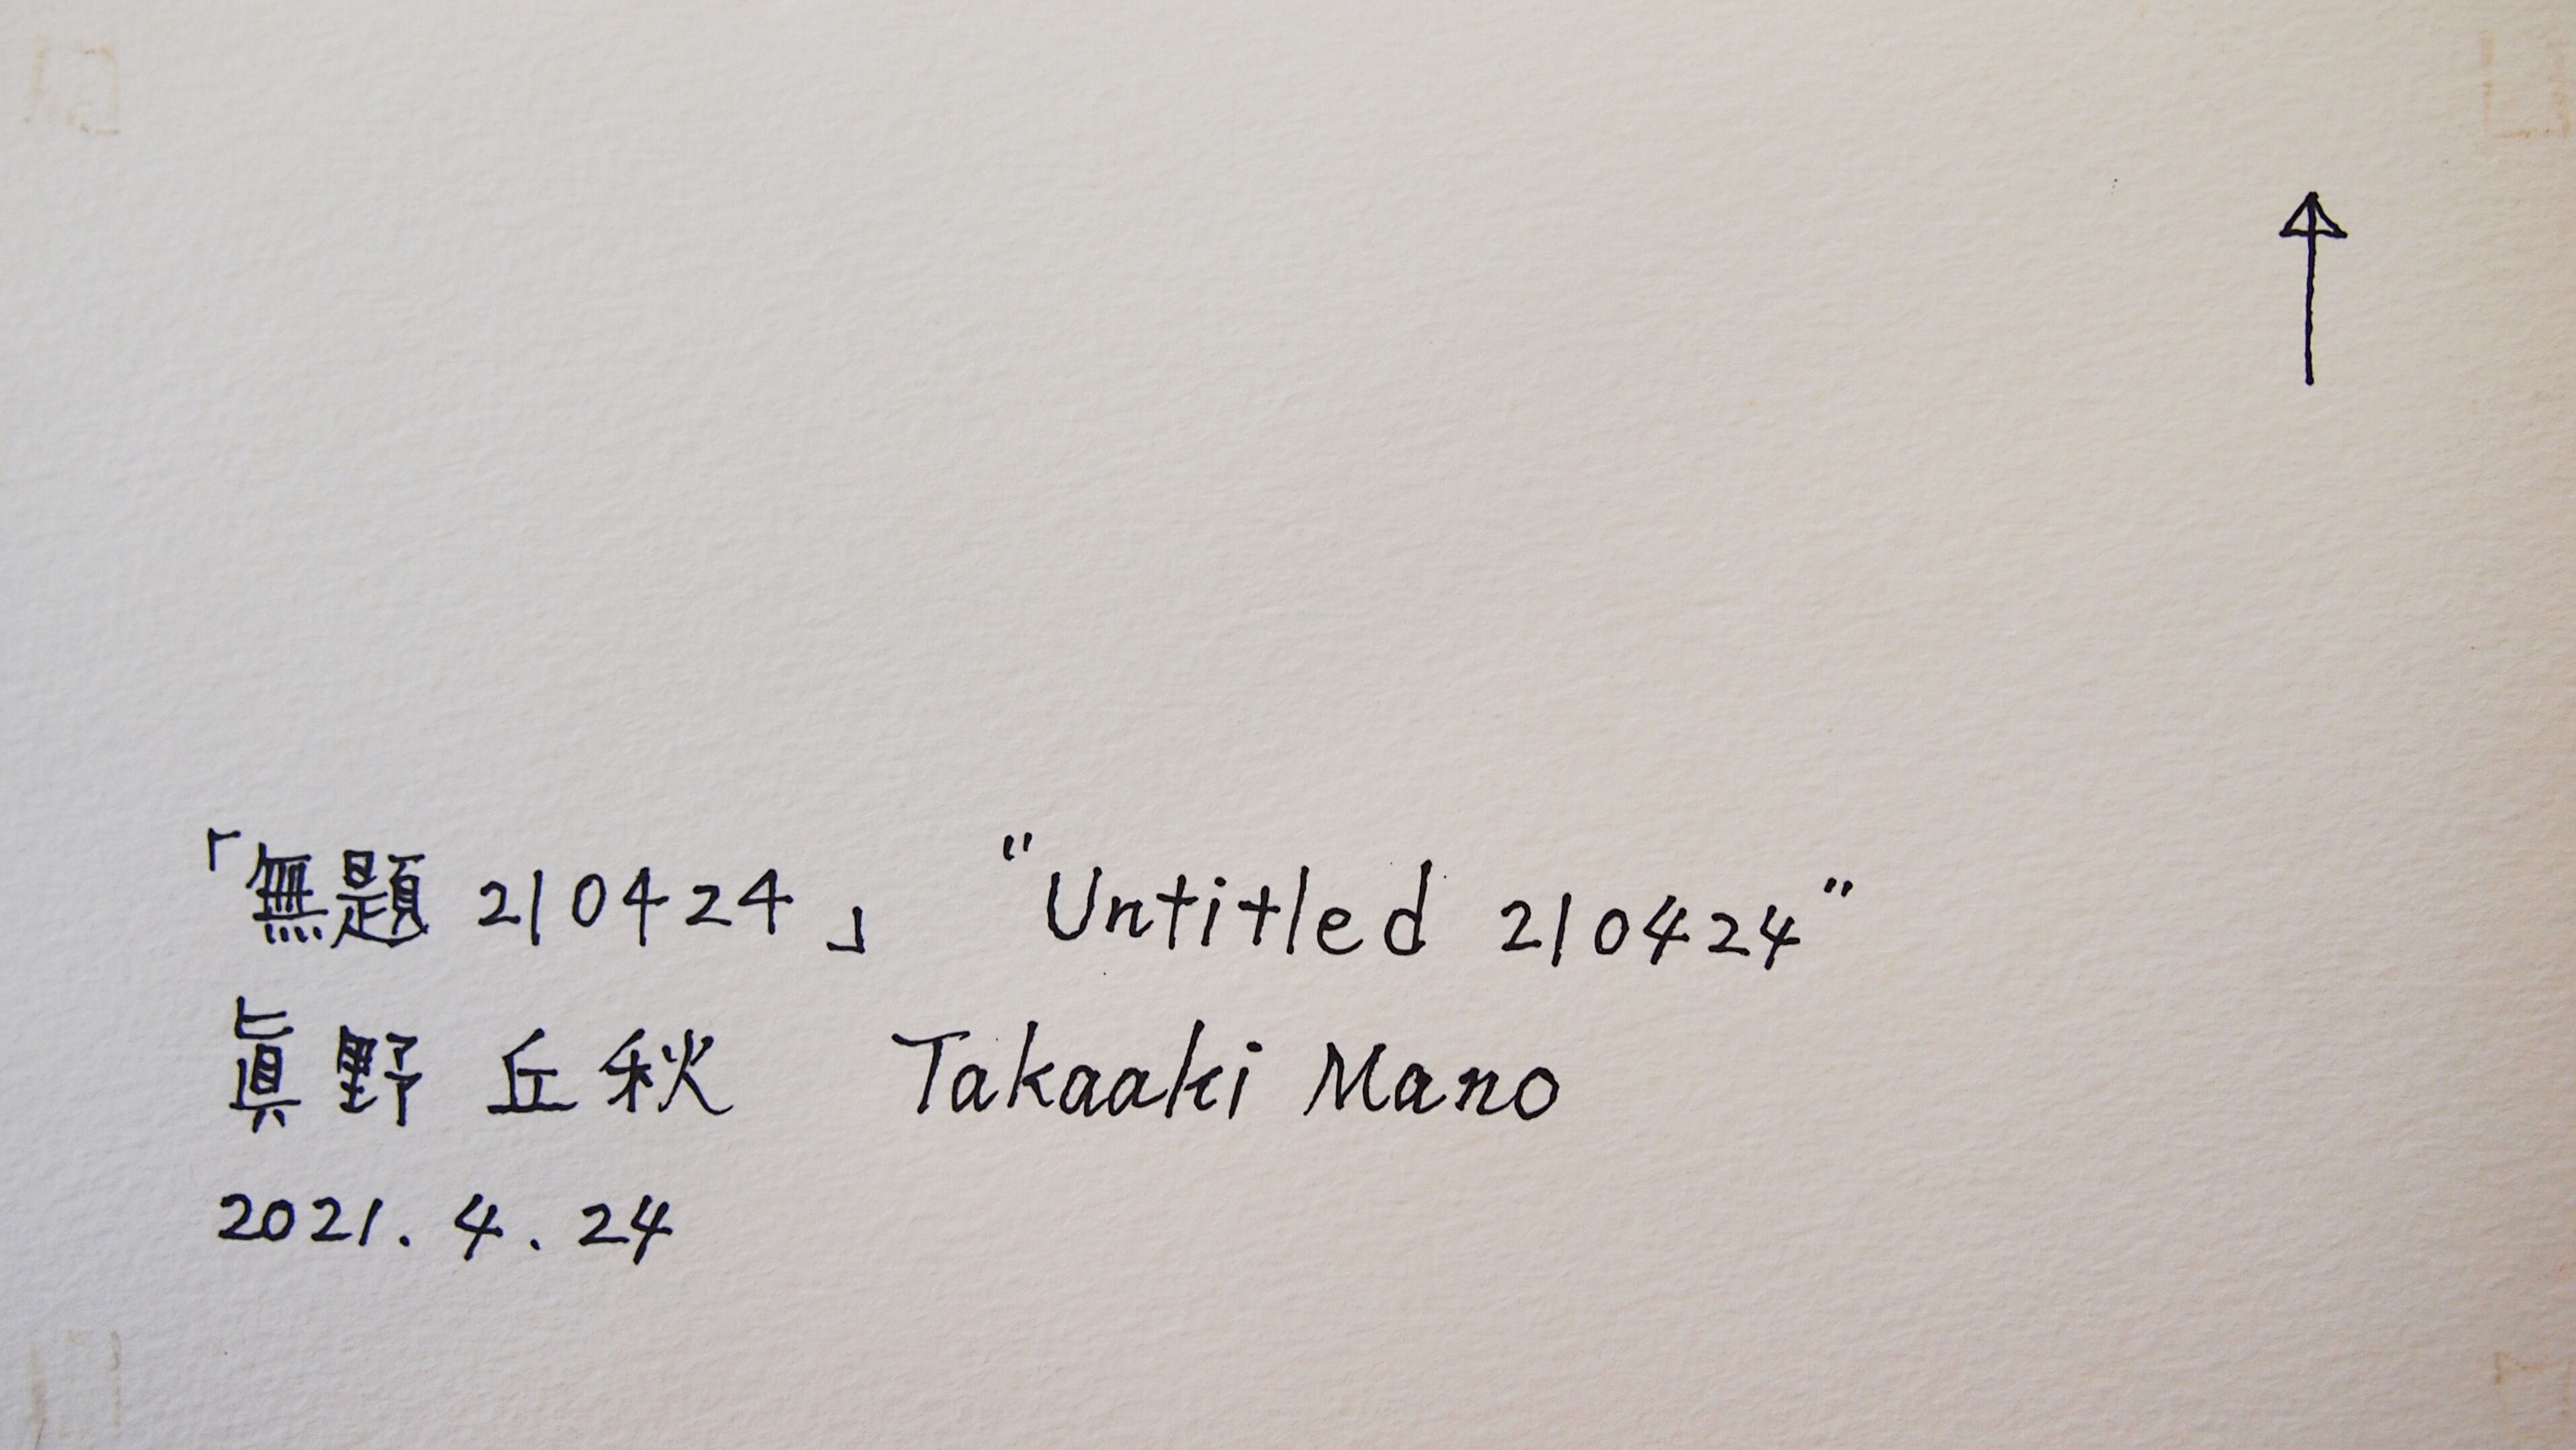 「無題 210424」 "Untitled 210424"
眞野 丘秋 Takaaki Mano
2021. 4. 24